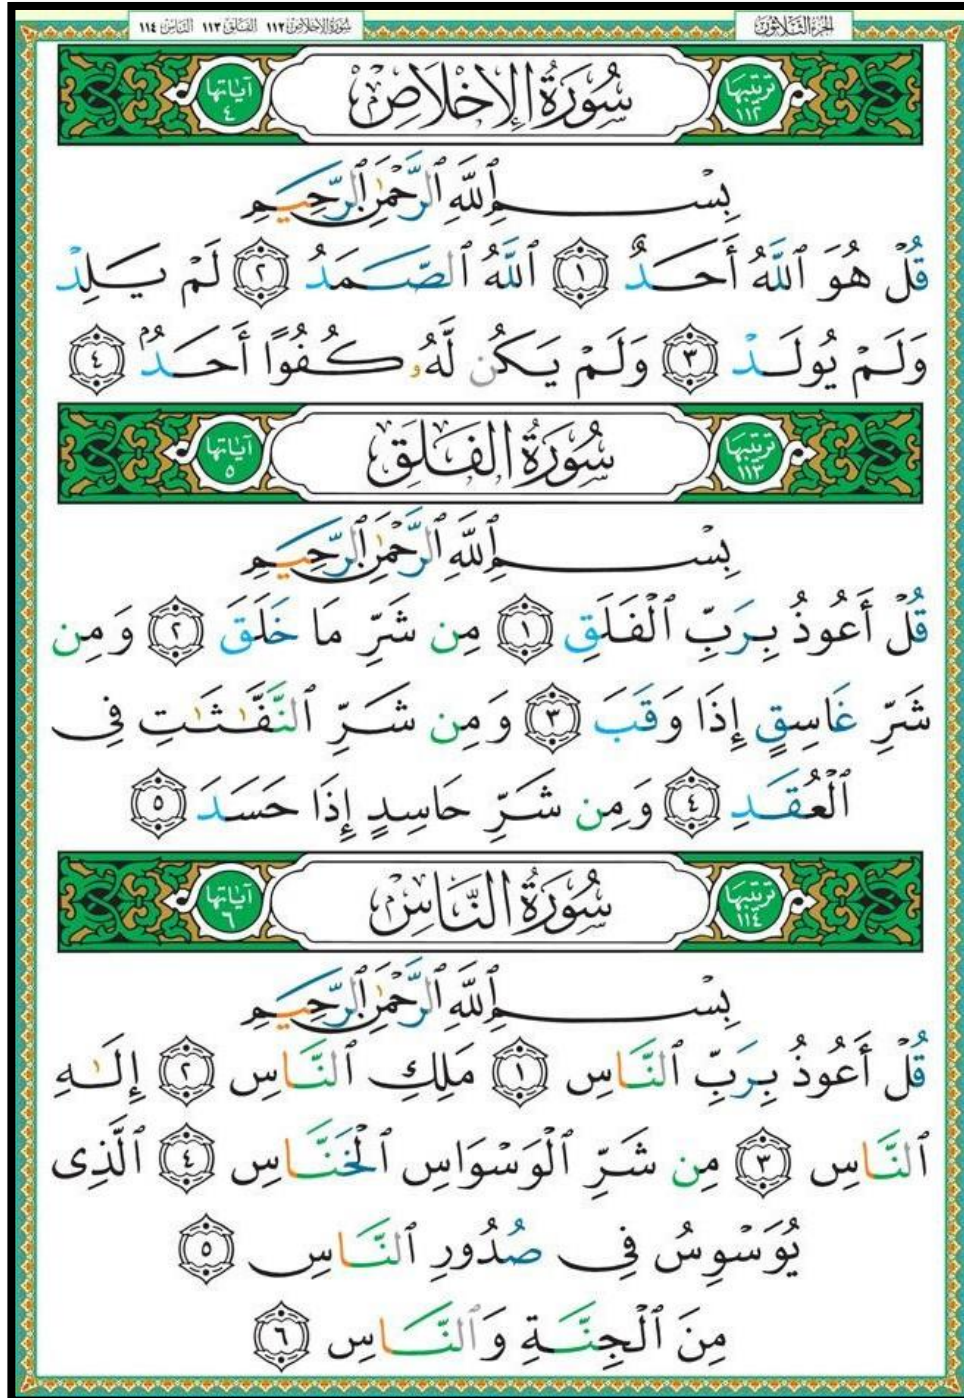 الجزء الثلاثون
سورة الإخلاص ١١٢ الفلق ١١٣ الناس ١١٤
ترتيبها ١١٢ سُورَةُ الإِخْلَاصِ آياتها ٤
بِسْمِ ٱللَّهِ ٱلرَّحْمَٰنِ ٱلرَّحِيمِ
قُلْ هُوَ ٱللَّهُ أَحَدٌ ١ ٱللَّهُ ٱلصَّمَدُ ٢ لَمْ يَلِدْ
وَلَمْ يُولَدْ ٣ وَلَمْ يَكُن لَّهُۥ كُفُوًا أَحَدٌۢ ٤
ترتيبها ١١٣ سُورَةُ الفَلَقِ آياتها ٥
بِسْمِ ٱللَّهِ ٱلرَّحْمَٰنِ ٱلرَّحِيمِ
قُلْ أَعُوذُ بِرَبِّ ٱلْفَلَقِ ١ مِن شَرِّ مَا خَلَقَ ٢ وَمِن
شَرِّ غَاسِقٍ إِذَا وَقَبَ ٣ وَمِن شَرِّ ٱلنَّفَّٰثَٰتِ فِى
ٱلْعُقَدِ ٤ وَمِن شَرِّ حَاسِدٍ إِذَا حَسَدَ ٥
ترتيبها ١١٤ سُورَةُ النَّاسِ آياتها ٦
بِسْمِ ٱللَّهِ ٱلرَّحْمَٰنِ ٱلرَّحِيمِ
قُلْ أَعُوذُ بِرَبِّ ٱلنَّاسِ ١ مَلِكِ ٱلنَّاسِ ٢ إِلَٰهِ
ٱلنَّاسِ ٣ مِن شَرِّ ٱلْوَسْوَاسِ ٱلْخَنَّاسِ ٤ ٱلَّذِى
يُوَسْوِسُ فِى صُدُورِ ٱلنَّاسِ ٥
مِنَ ٱلْجِنَّةِ وَٱلنَّاسِ ٦